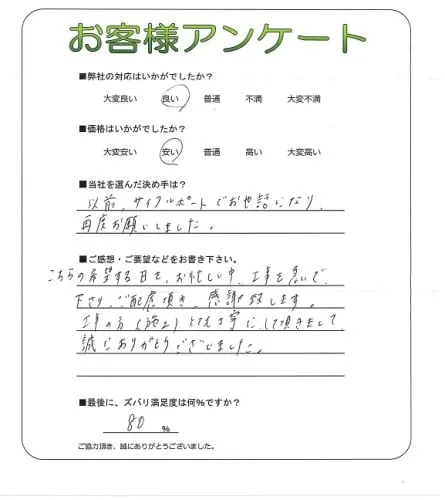 お客様アンケート
■弊社の対応はいかがでしたか？
大変良い 良い 普通 不満 大変不満
■価格はいかがでしたか？
大変安い 安い 普通 高い 大変高い
■当社を選んだ決め手は？
以前、サイクルポートでお世話になり、
再度お願いしました。
■ご感想・ご要望などをお書き下さい。
こちらの希望する日を、お忙しい中、工事を急いで、
下さり、ご配慮頂き、感謝致します。
工事の方（施工）とても丁寧にして頂きまして
誠にありがとうございました。
■最後に、ズバリ満足度は何%ですか？
80 %
ご協力頂き、誠にありがとうございました。